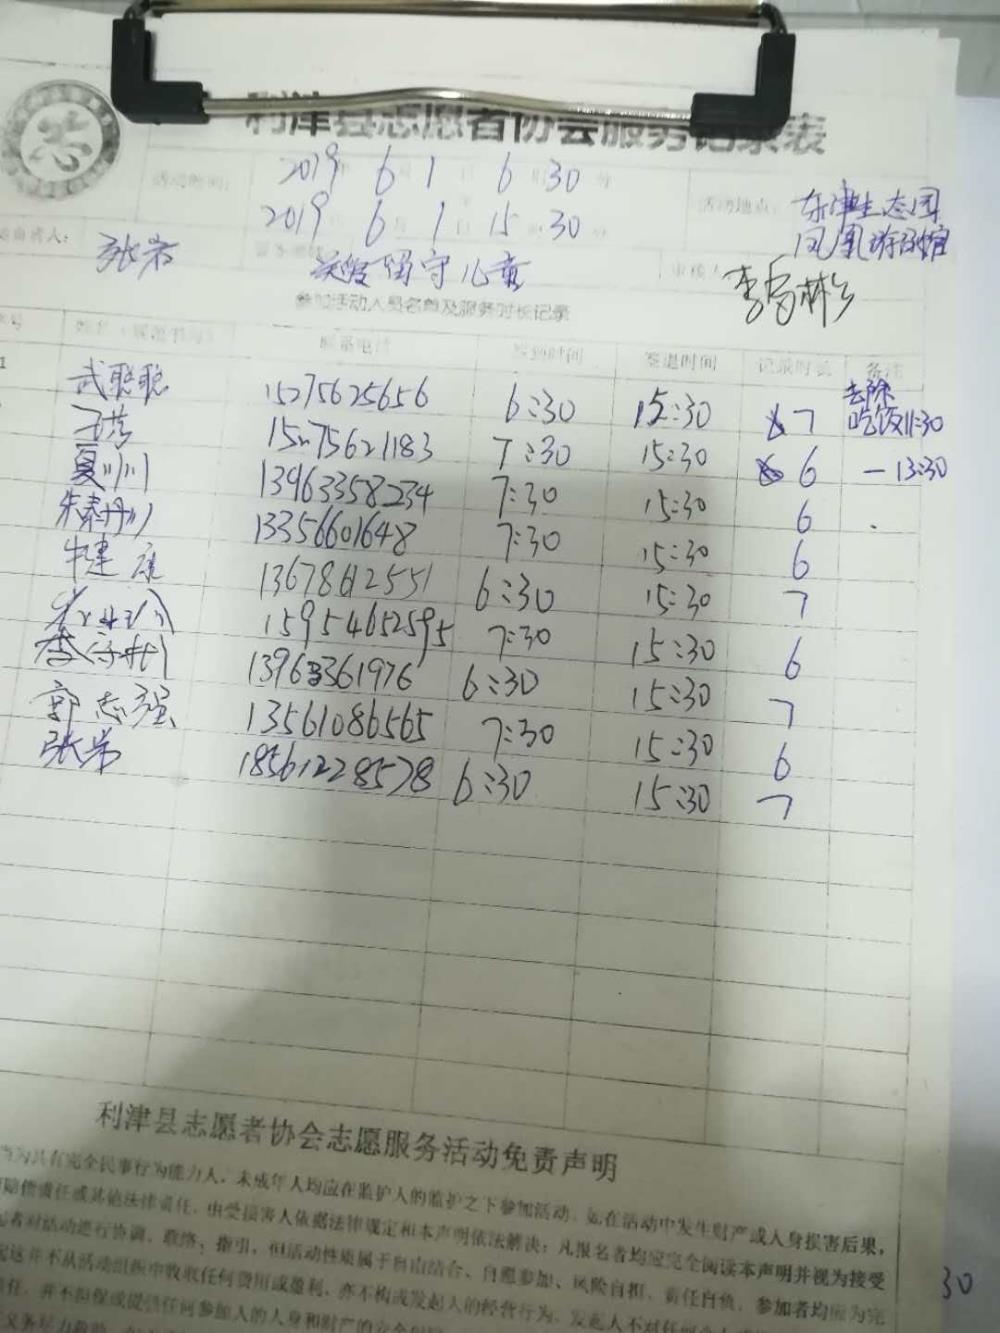 志
利津县志愿者协会服务记录表
活动时间: 2019年6月1日6时30分
2019年6月1日15时30分
活动地点: 东津生态园
凤凰游乐馆
负责人: 张岩
关爱留守儿童
审核人
参加活动人员名单及服务时长记录
联系电话 签到时间 签退时间 记录时长 备注
1 武聪聪 15275625656 6:30 15:30 7 去除吃饭11:30
15275621183 7:30 15:30 6 —13:30
夏川川 13963358234 7:30 15:30 6
13356601648 7:30 15:30 6
牛建康 1367862551 6:30 15:30 7
15954652595 7:30 15:30 6
13963361976 6:30 15:30 7
郭志强 13561086565 7:30 15:30 6
张岩 18561228578 6:30 15:30 7
利津县志愿者协会志愿服务活动免责声明
当为具有完全民事行为能力人，未成年人均应在监护人的监护之下参加活动，如在活动中发生财产或人身损害后果，
赔偿责任或其他法律责任，由受损害人依据法律规定和本声明依法解决；凡报名者均应完全阅读本声明并视为接受
者对活动进行协调、联络、指引，但活动性质属于自由结合、自愿参加、风险自担、责任自负，参加者均应为完
起这并不从活动组织中收取任何费用或盈利，亦不构成发起人的经营行为，发起人不对任何
任，并不担保或提供任何参加人的人身和财产的安全
30